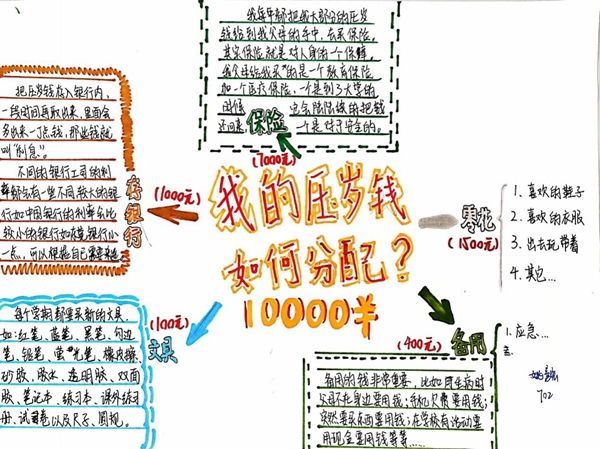 我的压岁钱
如何分配?
10000￥
保险
(7000元)
我每年都把我大部分的压岁
钱给到我父母的手中,去买保险。
其实保险就是对人身的一个保障。
我父母给我买的是一个教育保险
加一个医疗保险,一个是到了大学的
时候 也会陆陆续续的把钱
还回来 一个是对于安全的。
存银行
(1000元)
把压岁钱存入银行内,
一段时间再取出来,里面会
多出来一丁点钱,那些钱就
叫“利息”。
不同的银行公司的利
率都会有一些不同,较大的银
行如中国银行的利率会比
较小的银行如 银行小
一点,可以根据自己需要来选
零花
(1500元)
1. 喜欢的鞋子
2. 喜欢的衣服
3. 出去玩带着
4. 其它...
文具
(100元)
每个学期都要买新的文具,
如:红笔、蓝笔、黑笔、勾边
笔、铅笔、萤光笔、橡皮擦、
砂胶、胶水、透明胶、双面
胶、笔记本、练习本、课外练习
册、试卷以及尺子、圆规。
备用
(400元)
1. 应急...
备用的钱非常重要,比如 生病时
父母不在身边要用钱;手机欠费要用钱;
突然要买东西要用钱;在学校有活动要
用现金要用钱等等......
702